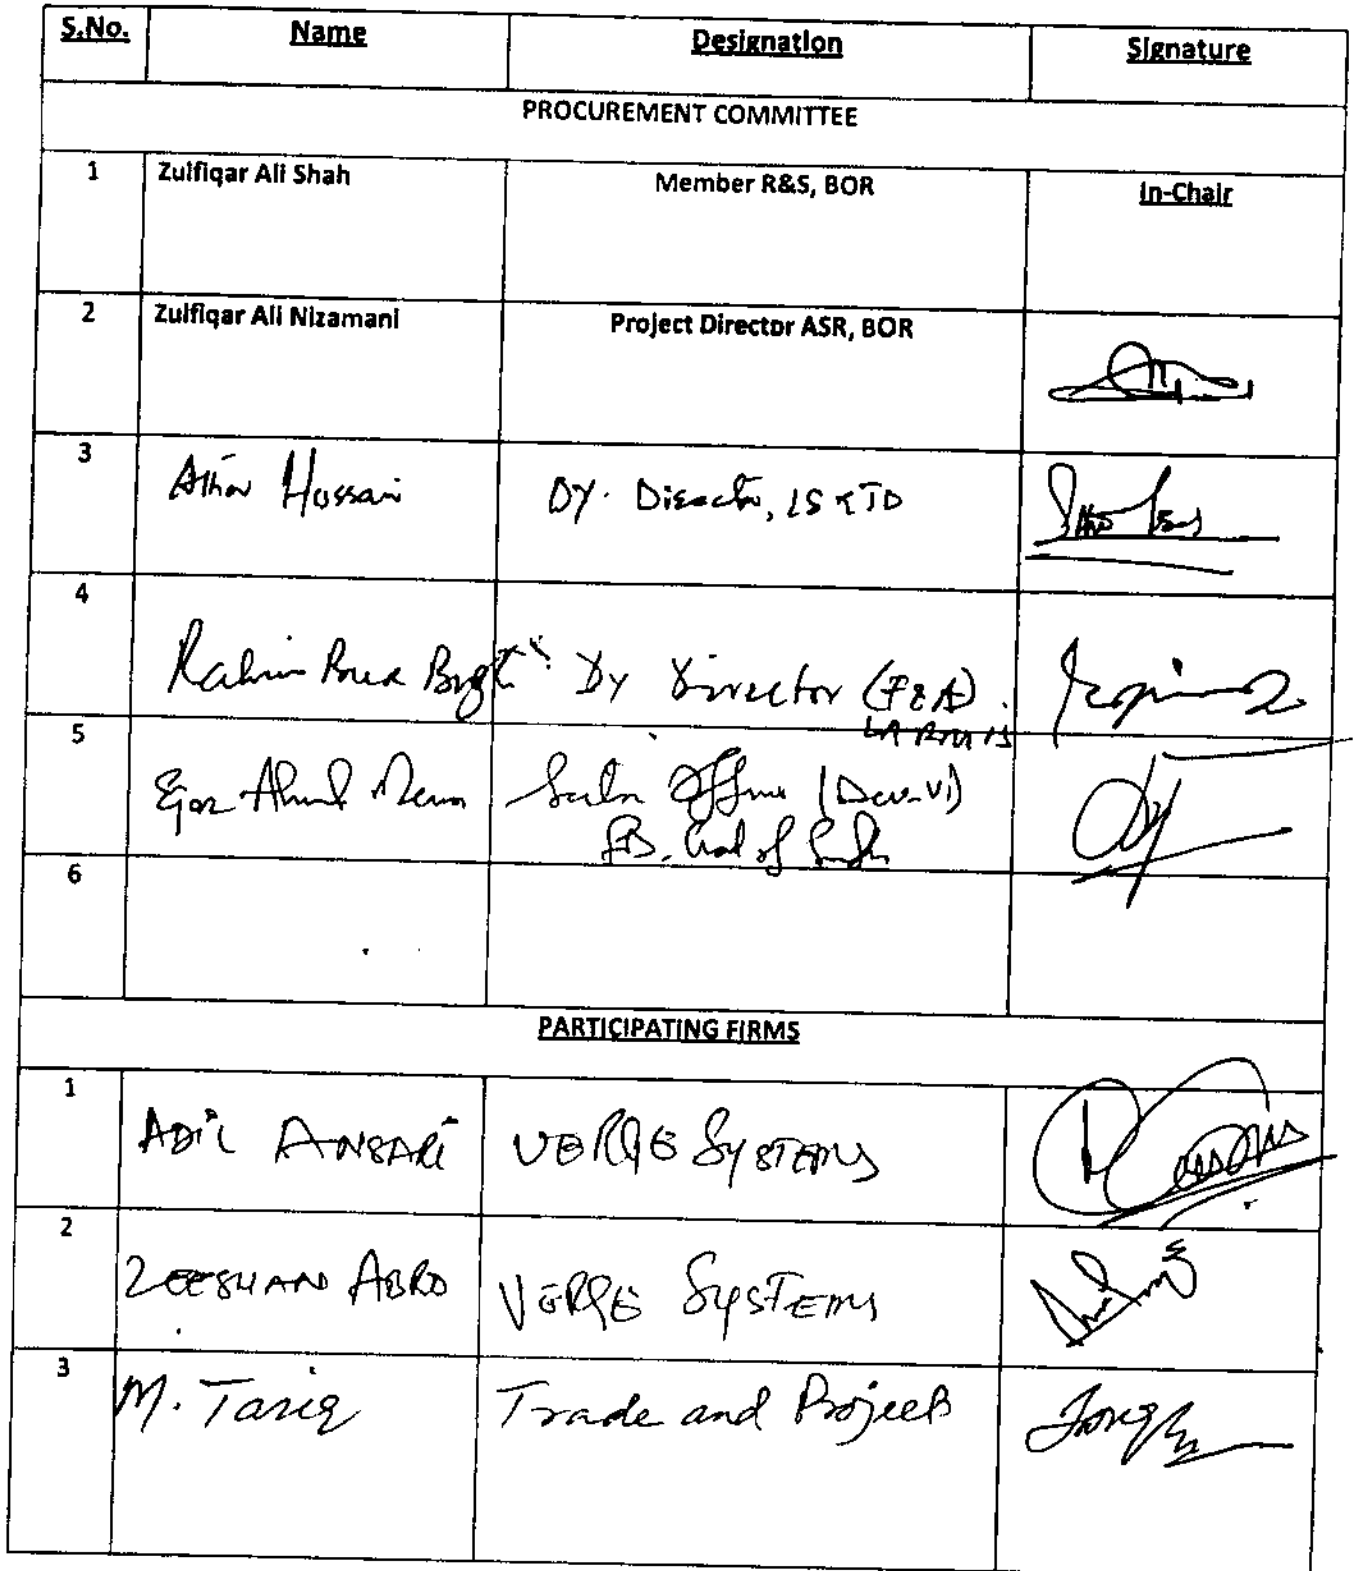 S.No. Name Designation Signature
PROCUREMENT COMMITTEE
1 Zulfiqar Ali Shah Member R&S, BOR In-Chair
2 Zulfiqar Ali Nizamani Project Director ASR, BOR
3 Athar Hussain DY. Director, IS & TD
4 Rahim Bux Bugti Dy Director (F&A)
LARMIS
5 Ejaz Ahmed Memon Section Officer (Dev-VI)
FD, Govt of Sindh
6
PARTICIPATING FIRMS
1 ADIL ANSARI VERGE SYSTEMS
2 ZEESHAN ABRO VERGE SYSTEMS
3 M. Tariq Trade and Projects